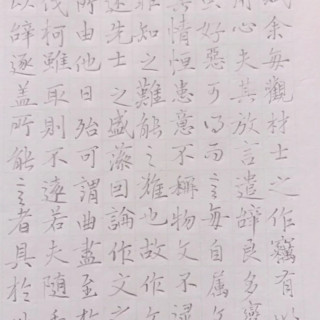 余每觀材士之作竊有以
用心夫其放言遣辭良多
好惡可得而言每自屬文
其情恒患意不稱物文不逮
知之難能之難也故作文
述先士之盛藻因論作文之
所由他日殆可謂曲盡至於
伐柯雖取則不遠若夫隨手
以辭逐蓋所能言者具於